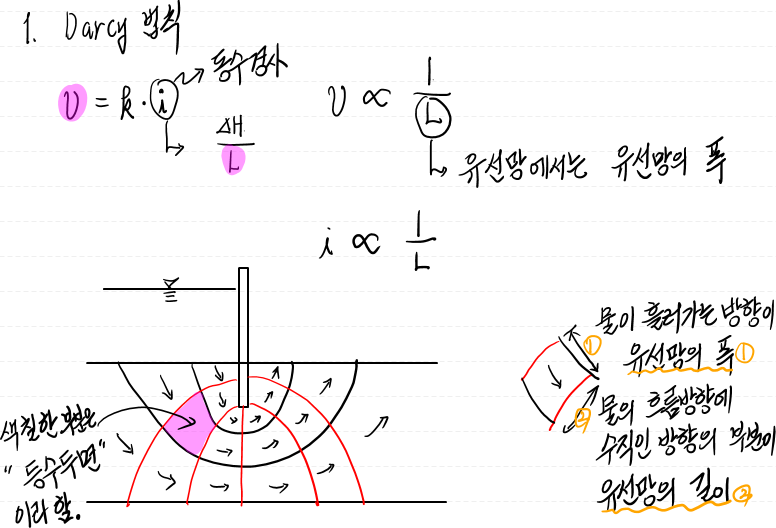 1. Darcy 법칙
v = k · i → 동수경사
ΔH
L
v ∝ 1/L
유선망에서는 유선망의 폭
i ∝ 1/L
색칠한 부분은
"등수두면"
이라 함.
물이 흘러가는 방향이
① 유선망의 폭①
② 물의 흐름방향에
수직인 방향의 부분이
유선망의 길이②